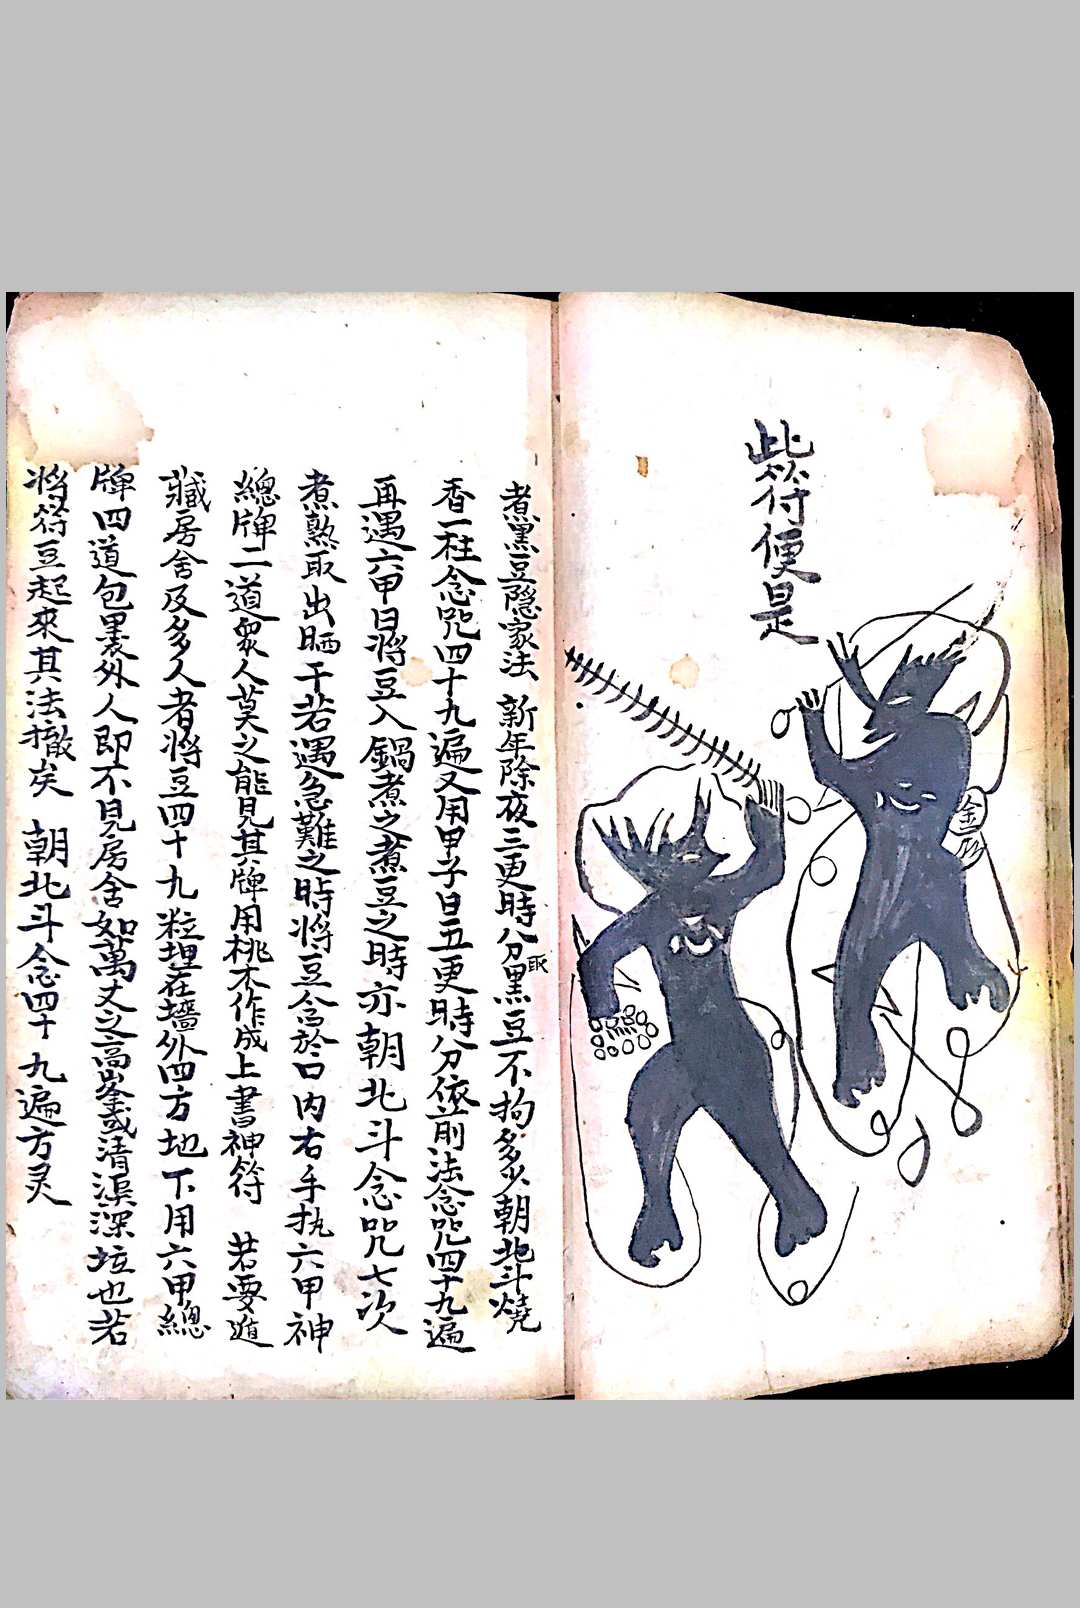 此符便是
心
金
心
煮黑豆隠家法 新年除夜三更時分取黑豆不拘多少朝北斗燒
香一柱念咒四十九遍又用甲子日五更時分依前法念咒四十九遍
再遇六甲日將豆入鍋煮之煮豆之時亦朝北斗念咒七次
煮熟取出晒干若遇急難之時將豆含於口内右手执六甲神
總牌二道衆人莫之能見其牌用桃木作成上書神符 若要遁
藏房舍及多人者將豆四十九粒埋在墻外四方地下用六甲總
牌四道包裹外人即不見房舍如萬丈之高峯或清溪深坑也若
將符豆起來其法撤矣 朝北斗念四十九遍方灵